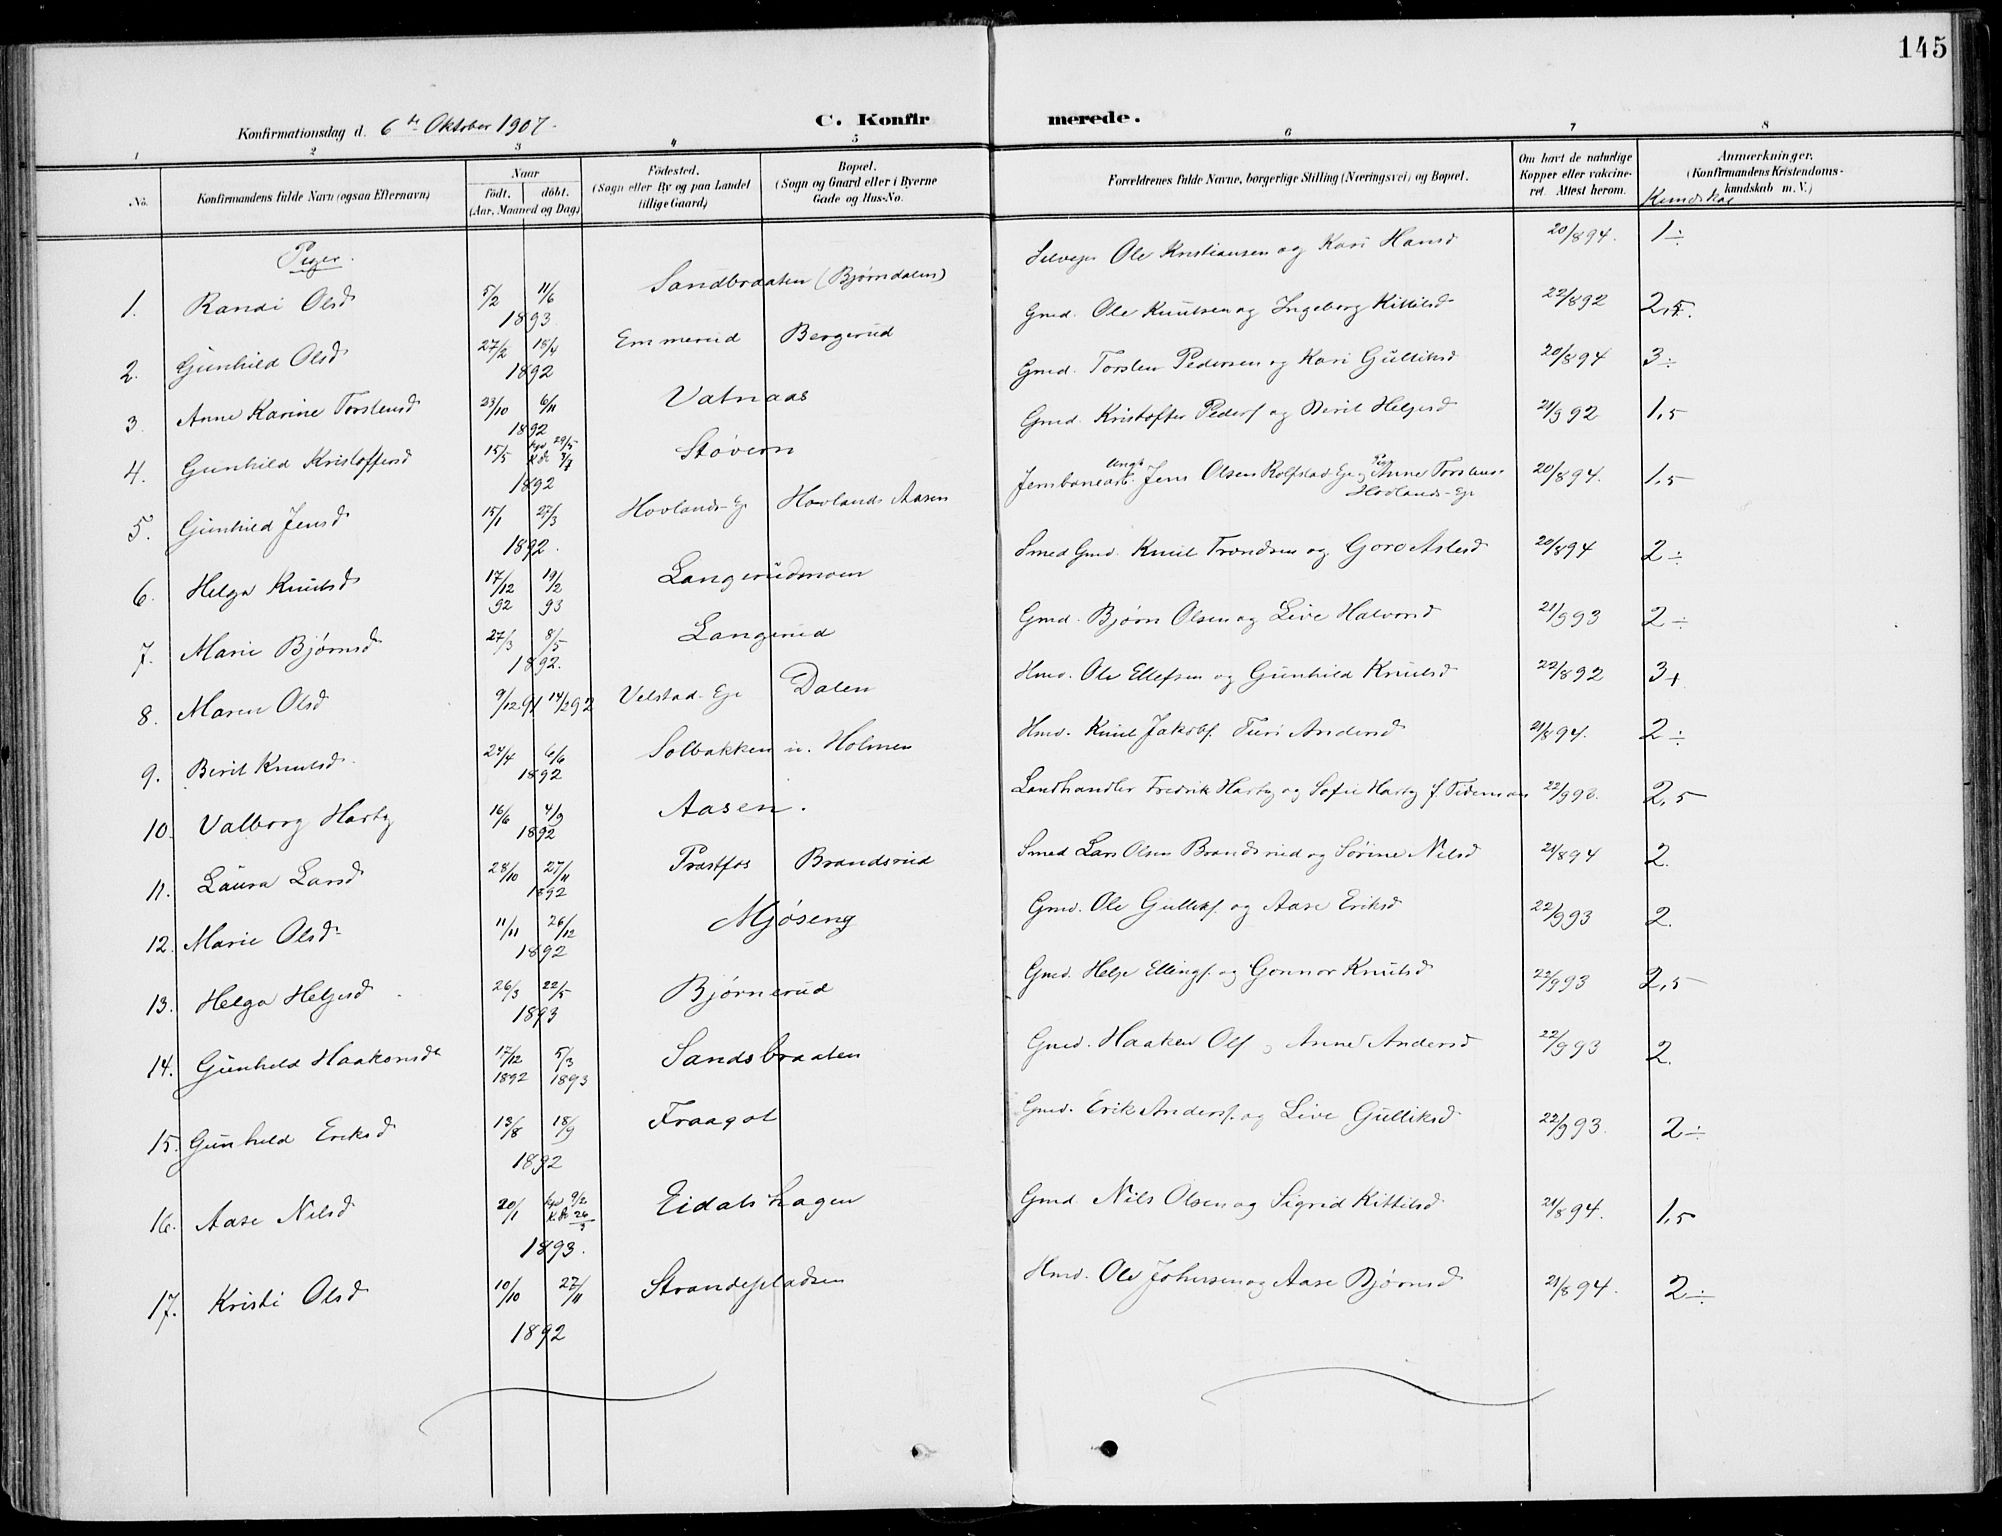 145
Konfirmationsdag d. 6te Oktober 1907.
C. Konfirmerede.
1 2 3 4 5 6 7 8
No. Konfirmandens fulde Navn (ogsaa Efternavn) Naar födt, döbt. (Aar, Maaned og Dag) Födested. (Sogn eller By og paa Landet tillige Gaard) Bopæl. (Sogn og Gaard eller i Byerne Gade og Hus-No. Forældrenes fulde Navne, borgerlige Stilling (Næringsvei) og Bopæl. Om havt de naturlige Kopper eller vakcineret. Attest herom. Anmærkninger. (Konfirmandens Kristendomskundskab m. V.)
Kundskab
Piger.
1. Randi Olsd 5/2 11/6 1893 Sandbraaten (Bjørndalen) Selvejer Ole Kristiansen og Kari Hansd 20/8 94. 1÷
2. Gunhild Olsd 27/2 18/4 1892 Emmerud Bergerud Gmd. Ole Knutsen og Ingeborg Kittilsd 22/8 92 2,5.
3. Anne Karine Torstensd 23/10 6/11 1892 Vatnaas Gmd. Torsten Pedersen og Kari Gulliksd 20/8 94 3÷
4. Gunhild Kristoffersd 15/5 hjd 29/5 K.dt 3/7 1892 Støvern Gmd. Kristoffer Peders. og Birit Helgesd 21/9 92 1,5
5. Gunhild Jensd 15/1 27/3 1892. Hovlands-Eje Hovlands Aasen Jernbanearb. Ungk. Jens Olsen Rolfstad-Eje og Pige Anne Torstensd Hovlands-Eje 20/8 94. 1,5
6. Helga Knutsd 17/12 92 19/2 93 Langerudmoen Smed Gmd. Knut Trondsen og Goro Aslesd 20/8 94 2÷
7. Marie Bjørnsd 27/3 8/5 1892. Langerud Gmd. Bjørn Olsen og Live Halvorsd 21/9 93 2÷
8. Maren Olsd 9/12 91 14/2 92 Velstad-Eje Dalen Hmd. Ole Ellefsen og Gunhild Knutsd 22/8 92 3+
9. Birit Knutsd 24/4 6/6 1892 Solbakken u. Holmen Hmd. Knut Jakobs. Turi Andersd 21/8 94. 2÷
10. Valborg Harby 16/6 4/9 1892 Aasen. Landhandler Fredrik Harby og Sofie Harby f. Tideman 22/9 93. 2,5
11. Laura Larsd 28/10 27/11 1892 Prastfos Brandsrud Smed Lars Olsen Brandsrud og Sørine Nilsd 21/8 94 2.
12. Marie Olsd 11/11 26/12 1892 Mjøseng Gmd. Ole Gulliks. og Aase Eriksd 22/9 93 2.
13. Helga Helgesd 26/3 22/5 1893 Bjørnerud Gmd. Helge Ellings. og Gonnor Knutsd 22/9 93 2,5
14. Gunhild Haakonsd 17/12 1892 5/3 1893 Sandsbraaten Gmd. Haaken Ols. og Anne Andersd 22/9 93 2.
15. Gunhild Eriksd 13/8 18/9 1892 Fraagot Gmd. Erik Anders. og Live Gulliksd 22/9 93. 2÷
16. Aase Nilsd 20/1 hjd 9/2 K.dt 26/3 1893. Eidalshagen Gmd Nils Olsen og Sigrid Kittilsd 21/8 94. 1,5
17. Kristi Olsd 10/10 27/11 1892 Strandepladsen Hmd. Ole Johnsen og Aase Bjørnsd 21/8 94. 2÷